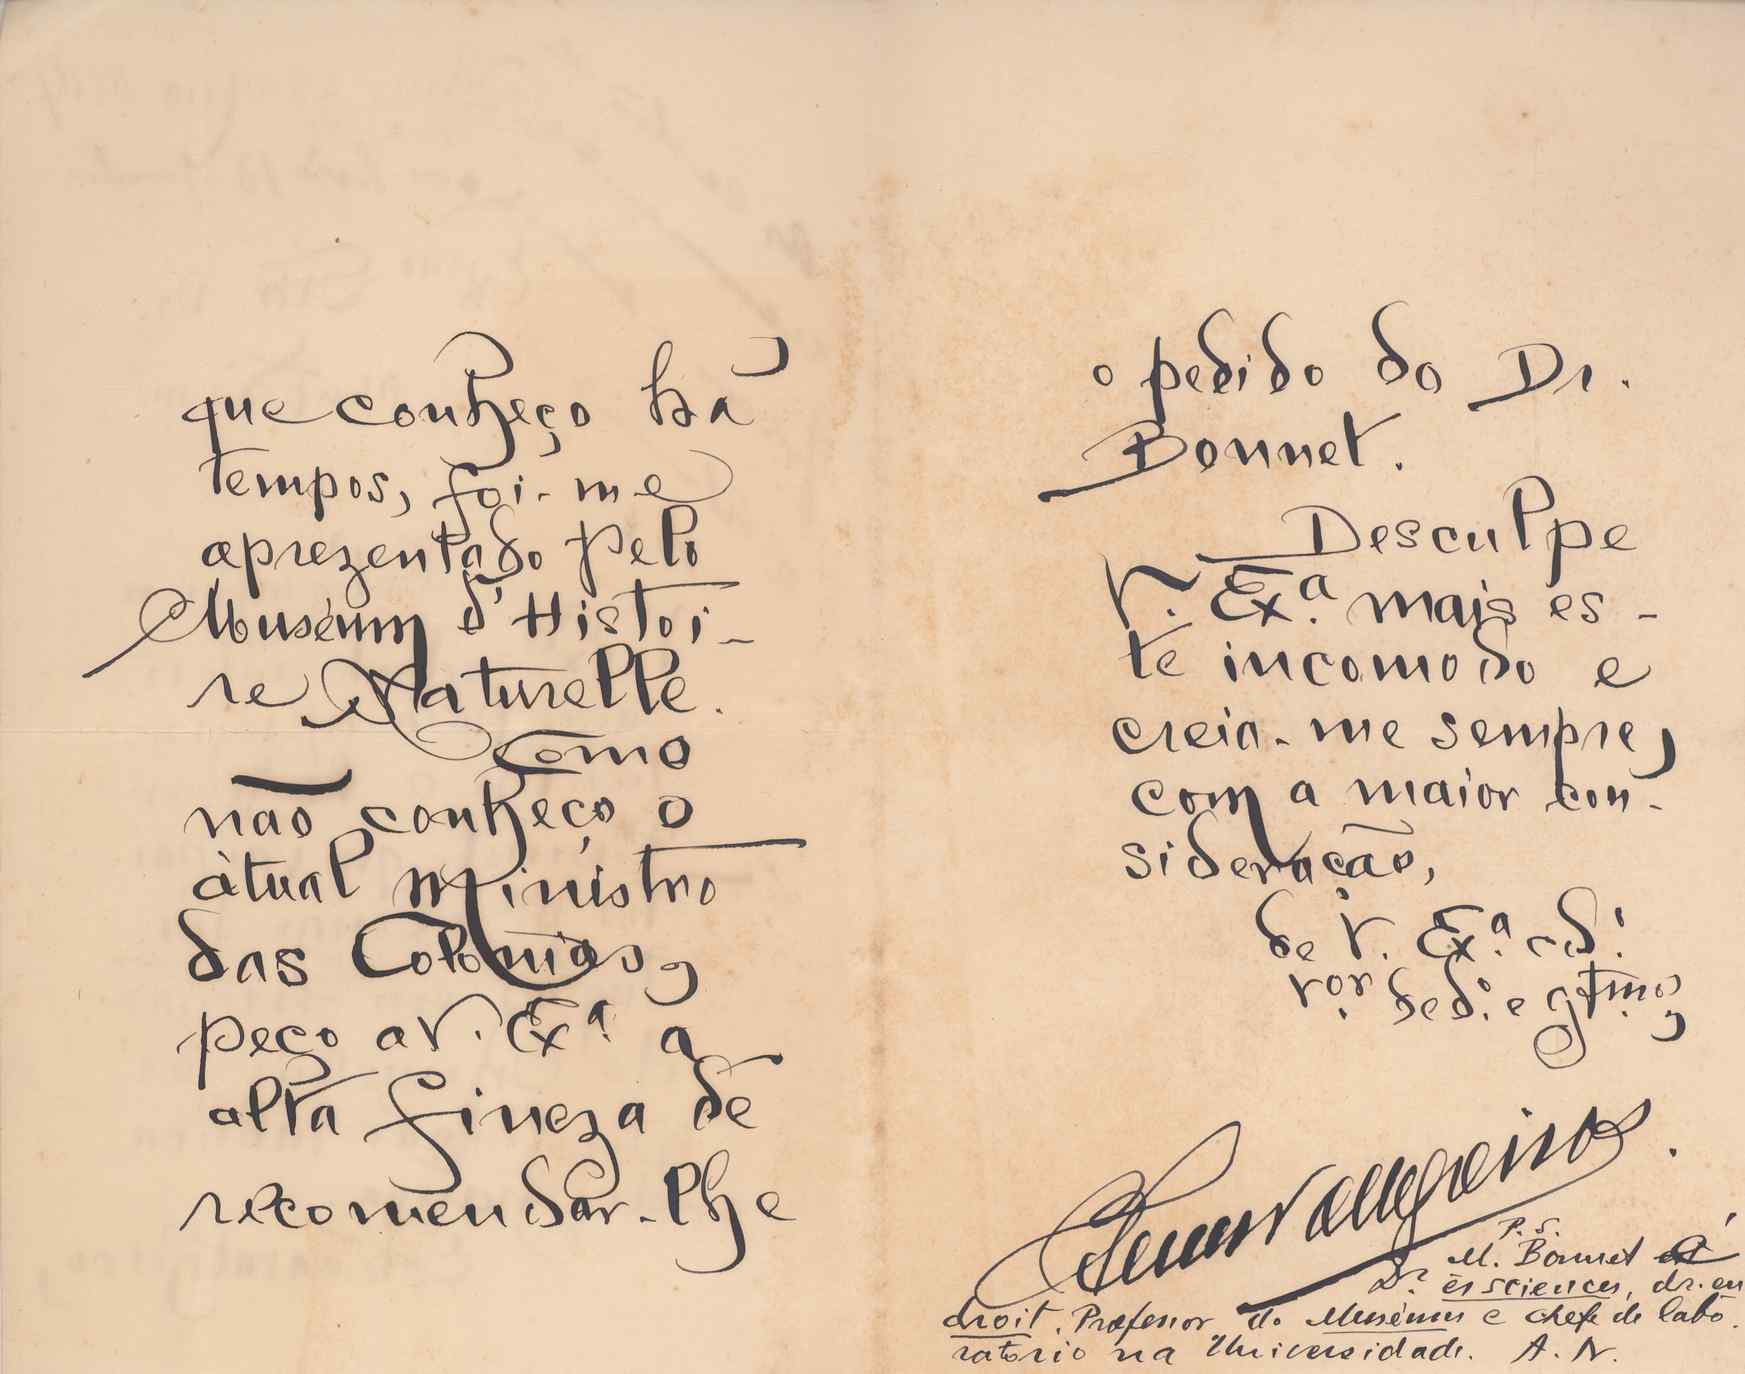 que conheço há
tempos, foi-me
aprezentado pelo
Muséum d'Histoi-
re Naturelle.
Como
não conheço o
àtual Ministro
das Colonias,
peço a V. Ex.ª a
alta fineza de
recomendar-lhe
o pedido do Dr.
Bonnet.
Desculpe
V. Ex.ª mais es-
te incomodo e
creia-me sempre,
com a maior con-
sideração,
de V. Ex.ª ad.
ror ded.º e gtmo,
P. S.
M. Bonnet é
Dr. ès sciences, dr. en
droit, Professor do Muséum e chefe de labo.
ratorio na Universidade. A. N.